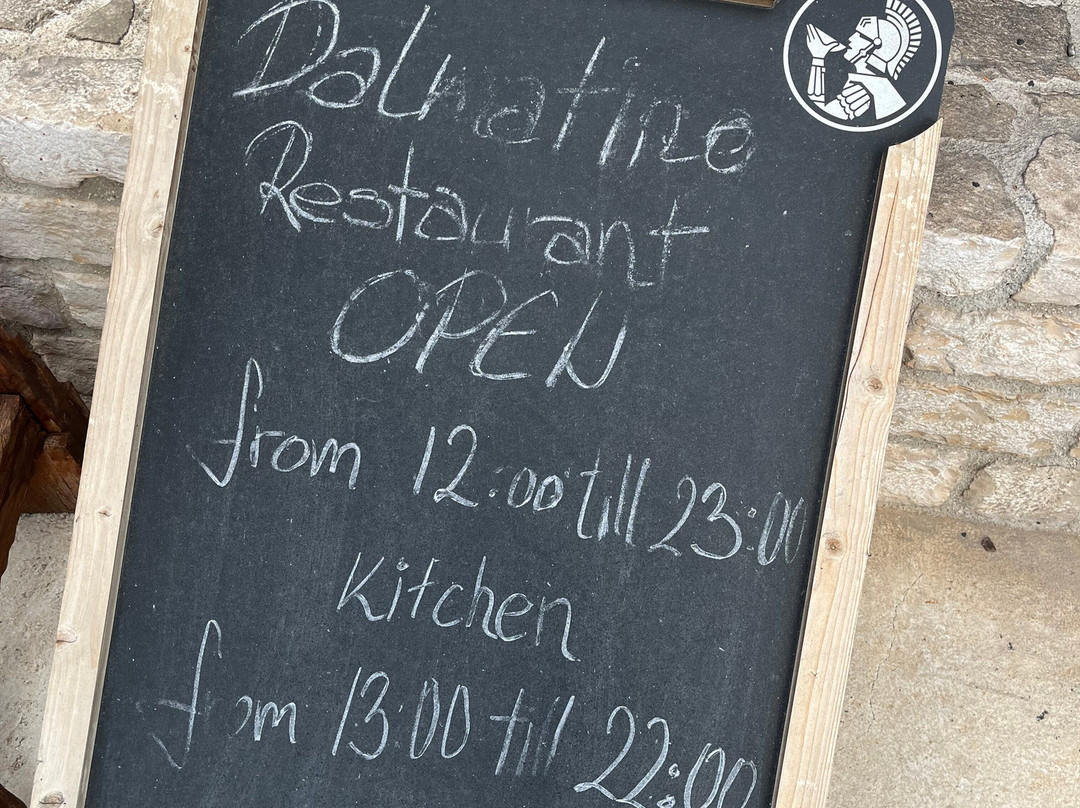 Dalmatino
Restaurant
OPEN
from 12:00 till 23:00
Kitchen
from 13:00 till 22:00